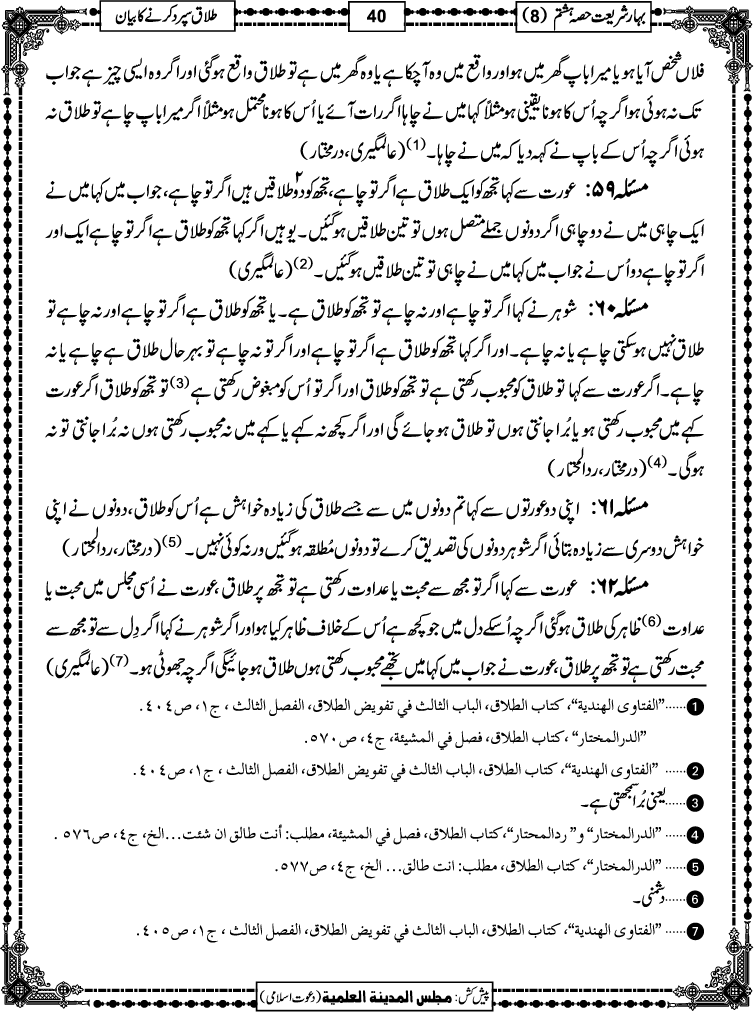 بہار شریعت حصہ ہشتم (8)
40
طلاق سپرد کرنے کا بیان
فلاں شخص آیا ہو یا میرا باپ گھر میں ہو اور واقع میں وہ آچکا ہے یا وہ گھر میں ہے تو طلاق واقع ہوگئی اور اگر وہ ایسی چیز ہے جو اب
تک نہ ہوئی ہو اگرچہ اُس کا ہونا یقینی ہو مثلاً کہا میں نے چاہا اگر رات آئے یا اُس کا ہونا محتمل ہو مثلاً اگر میرا باپ چاہے تو طلاق نہ
ہوئی اگرچہ اُس کے باپ نے کہہ دیا کہ میں نے چاہا۔(1) (عالمگیری، درمختار)
مسئلہ ۵۹: عورت سے کہا تجھ کو ایک طلاق ہے اگر تو چاہے، تجھ کو دو۲ طلاقیں ہیں اگر تو چاہے، جواب میں کہا میں نے
ایک چاہی میں نے دو چاہی اگر دونوں جملے متصل ہوں تو تین طلاقیں ہوگئیں۔ یوہیں اگر کہا تجھ کو طلاق ہے اگر تو چاہے ایک اور
اگر تو چاہے دو اُس نے جواب میں کہا میں نے چاہی تو تین طلاقیں ہوگئیں۔(2) (عالمگیری)
مسئلہ ۶۰: شوہر نے کہا اگر تو چاہے اور نہ چاہے تو تجھ کو طلاق ہے۔ یا تجھ کو طلاق ہے اگر تو چاہے اور نہ چاہے تو
طلاق نہیں ہوسکتی چاہے یا نہ چاہے۔ اور اگر کہا تجھ کو طلاق ہے اگر تو چاہے اور اگر تو نہ چاہے تو بہرحال طلاق ہے چاہے یا نہ
چاہے۔ اگر عورت سے کہا تو طلاق کو محبوب رکھتی ہے تو تجھ کو طلاق اور اگر تو اُس کو مبغوض رکھتی ہے(3) تو تجھ کو طلاق اگر عورت
کہے میں محبوب رکھتی ہوں یا بُرا جانتی ہوں تو طلاق ہو جائے گی اور اگر کچھ نہ کہے یا کہے میں نہ محبوب رکھتی ہوں نہ بُرا جانتی تو نہ
ہوگی۔(4) (درمختار، ردالمحتار)
مسئلہ ۶۱: اپنی دو عورتوں سے کہا تم دونوں میں سے جسے طلاق کی زیادہ خواہش ہے اُس کو طلاق، دونوں نے اپنی
خواہش دوسری سے زیادہ بتائی اگر شوہر دونوں کی تصدیق کرے تو دونوں مُطلقہ ہوگئیں ورنہ کوئی نہیں۔(5) (درمختار، ردالمحتار)
مسئلہ ۶۲: عورت سے کہا اگر تو مجھ سے محبت یا عداوت رکھتی ہے تو تجھ پر طلاق، عورت نے اُسی مجلس میں محبت یا
عداوت(6) ظاہر کی طلاق ہوگئی اگرچہ اُسکے دل میں جو کچھ ہے اُس کے خلاف ظاہر کیا ہو اور اگر شوہر نے کہا اگر دِل سے تو مجھ سے
محبت رکھتی ہے تو تجھ پر طلاق، عورت نے جواب میں کہا میں تجھے محبوب رکھتی ہوں طلاق ہو جائیگی اگرچہ جھوٹی ہو۔(7) (عالمگیری)
1......"الفتاوی الهندية"، كتاب الطلاق، الباب الثالث في تفويض الطلاق، الفصل الثالث، ج١، ص٤٠٤.
"الدرالمختار"، كتاب الطلاق، فصل في المشيئة، ج٤، ص٥٧٠.
2...... "الفتاوی الهندية"، كتاب الطلاق، الباب الثالث في تفويض الطلاق، الفصل الثالث، ج١، ص٤٠٤.
3......یعنی بُرا سمجھتی ہے۔
4...... "الدرالمختار" و" ردالمحتار"،كتاب الطلاق، فصل في المشيئة، مطلب: أنت طالق ان شئت...الخ، ج٤، ص٥٧٦.
5...... "الدرالمختار"، كتاب الطلاق، مطلب: انت طالق... الخ، ج٤، ص٥٧٧.
6......دشمنی۔
7...... "الفتاوی الهندية"، كتاب الطلاق، الباب الثالث في تفويض الطلاق، الفصل الثالث، ج١، ص٤٠٥.
پیش کش: مجلس المدينة العلمية (دعوت اسلامی)